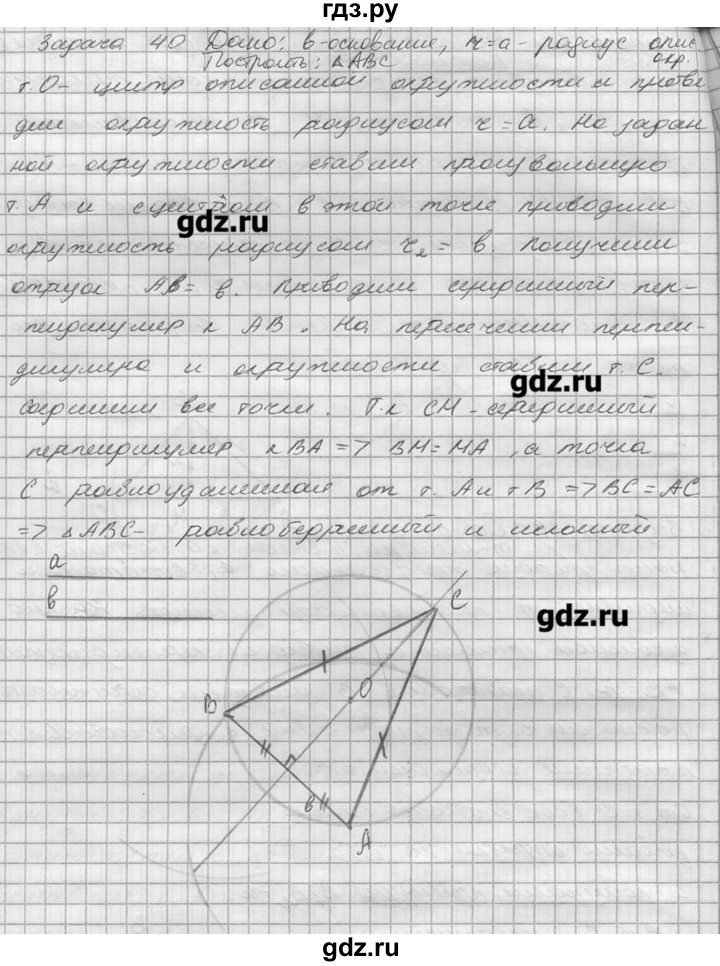 гдз.ру
Задача 40 Дано: в-основание, r=a- радиус опис. окр.
Построить: △ABC
т. О- центр описанной окружности и прове
дим окружность радиусом r=a. На задан
ной окружности ставим произвольную
т. А и с центром в этой точке проводим
gdz.ru
окружность радиусом r₂= в. Получили
отрезок AB= в. Проводим серединный пер-
пендикуляр к AB. На пересечении перпен-
дикуляра и окружности ставим т. С.
gdz.ru
Соединим все точки. Т.к CM-серединный
перпендикуляр к BA => BM=MA, а точка
С равноудаленная от т. А и т В => BC=AC
=> △ABC- равнобедренный и искомый
a
в
gdz.ru
C
O
B
в
A
gdz.ru